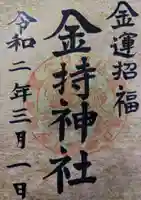 金運招福
金持神社
令和二年三月一日